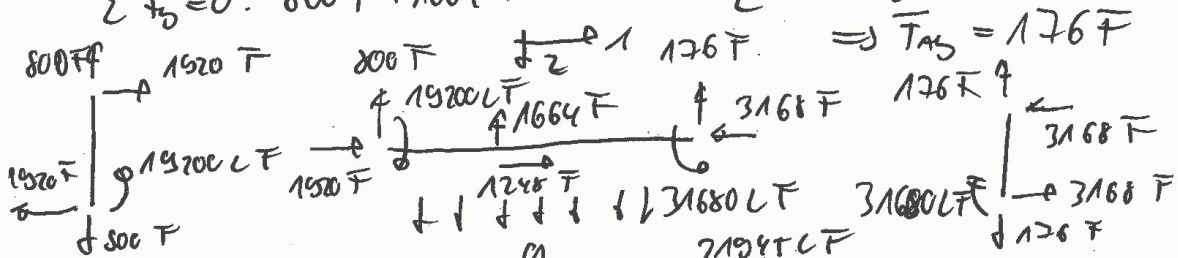 800 F 1920 F 800 F 2 1 176 F. ⇒ T̄AB = 176 F
19200 L F 1664 F 3168 F 176 F
3168 F
1920 F 19200 L F 1920 F 1248 F 31680 L F 31680 L F 3168 F
800 F q 176 F